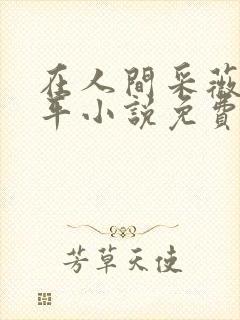 在人間采薇
年小説免費
芳草天使